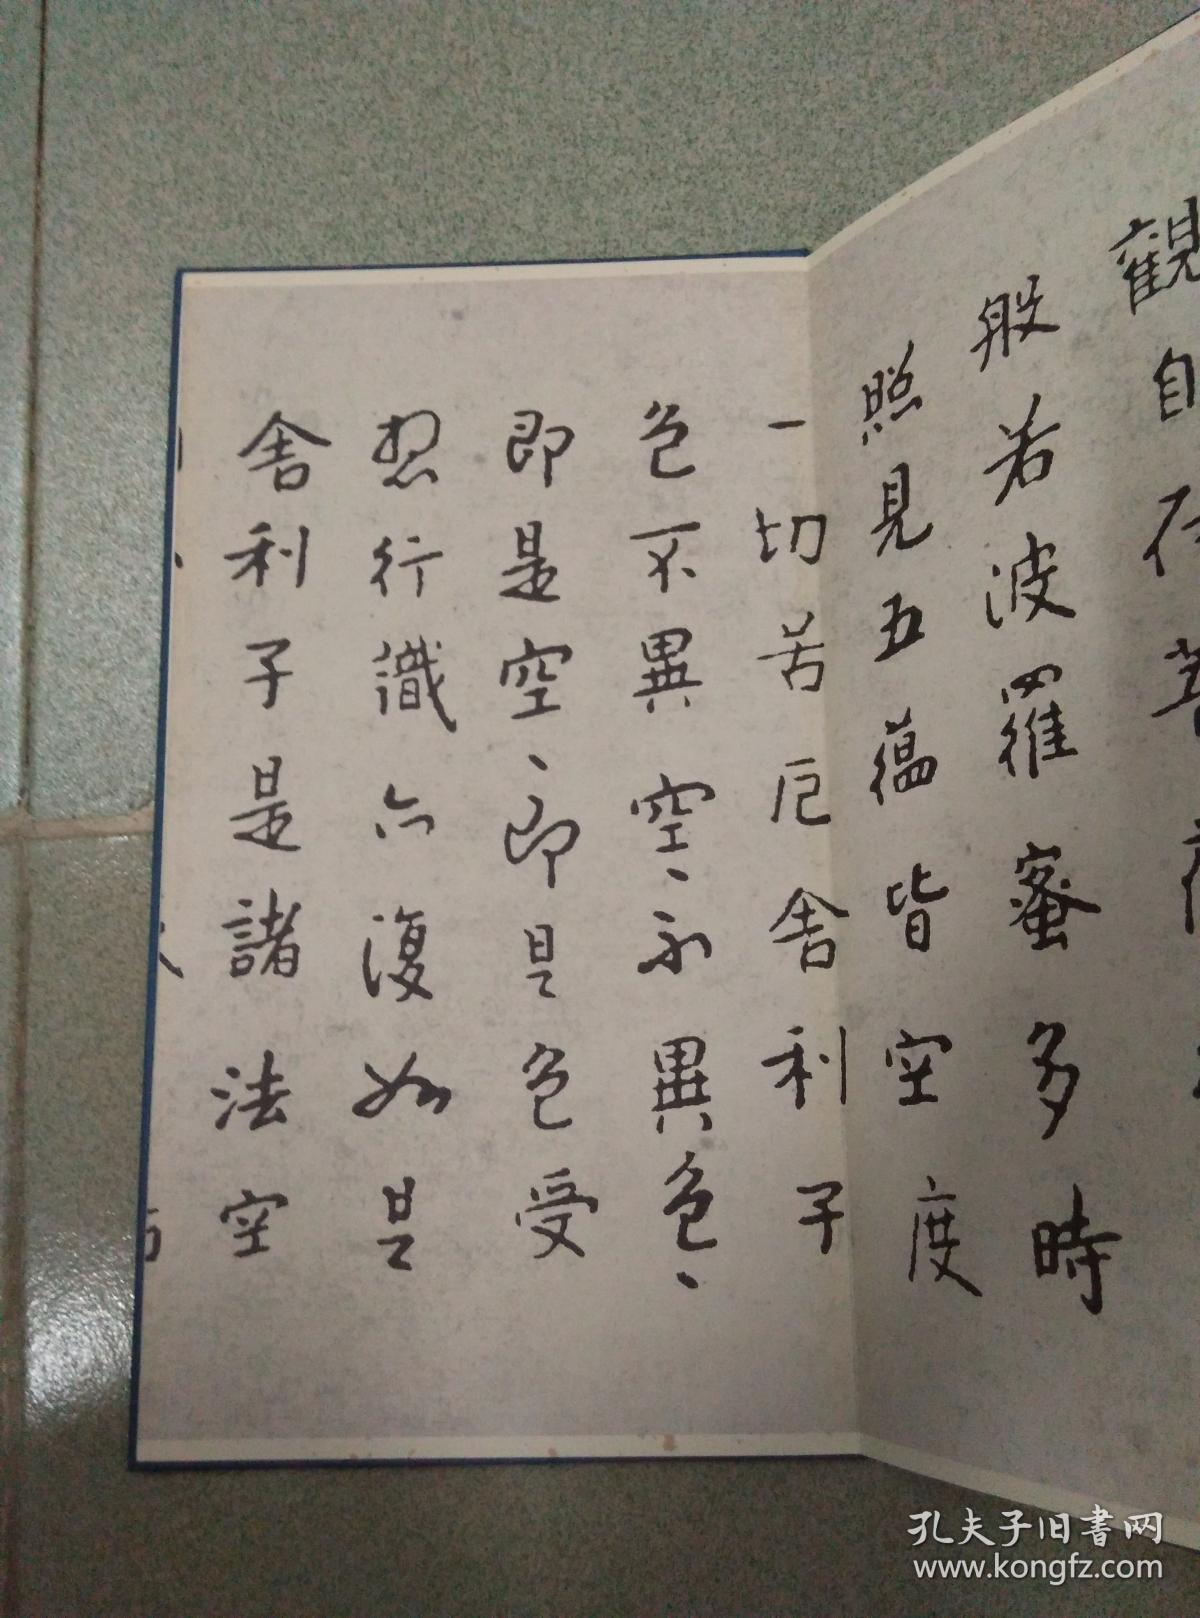 觀自在菩
般若波羅蜜多時
照見五蘊皆空度
一切苦厄舍利子
色不異空、不異色、
即是空、即是色受
想行識亦復如是
舍利子是諸法空
孔夫子旧书网
www.kongfz.com